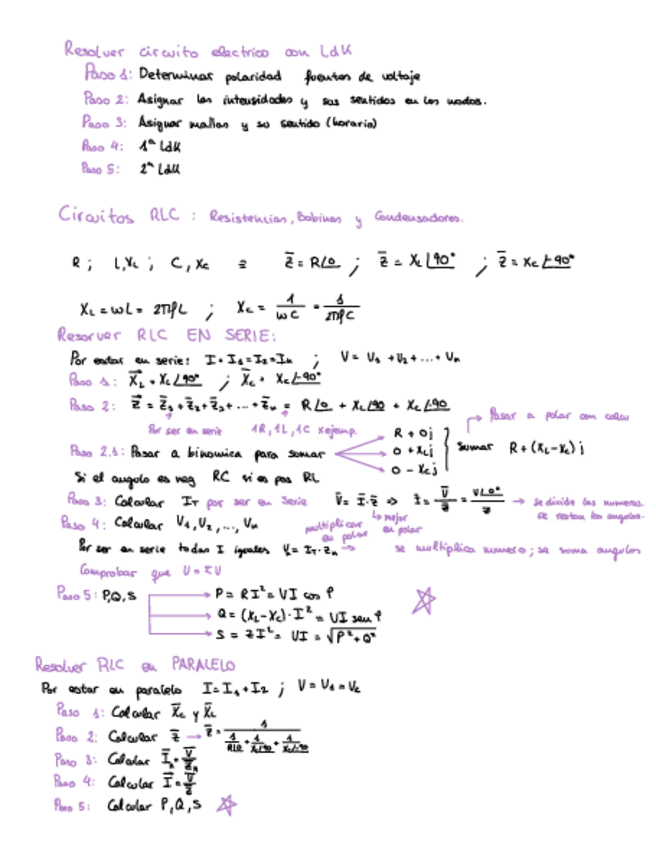 Resolver circuito electrico con LdK
Paso 1: Determinar polaridad fuentes de voltaje
Paso 2: Asignar las intensidades y sus sentidos en los nodos.
Paso 3: Asignar mallas y su sentido (horario)
Paso 4: 1ª LdK
Paso 5: 2ª LdK
Circuitos RLC : Resistencias, Bobinas y Condensadores.
R ; L, XL ; C, Xc ≡ Z̅ = R∠0 ; Z̅ = XL∠90° ; Z̅ = Xc∠-90°
XL = ωL = 2πfL ; Xc = 1/ωC = 1/2πfC
Resorver RLC EN SERIE:
Por estar en serie: I = I1 = I2 = In ; V = V1 + V2 + ... + Vn
Paso 1: X̅L = XL∠90° ; X̅c = Xc∠-90°
Paso 2: Z̅ = Z̅1 + Z̅2 + Z̅3 + ... + Z̅n = R∠0 + XL∠90 + Xc∠-90
Por ser en serie 1R, 1L, 1C x ejemp.
Pasar a polar con calcu
Paso 2.1: Pasar a binomica para sumar
R + 0j
0 + XLj
0 - Xcj
sumar R + (XL - Xc) j
Si el angulo es neg RC si es pos RL
Paso 3: Calcular IT por ser en serie V̅ = I̅·Z̅ ⇒ I̅ = V̅/Z̅ = V∠0°/Z → se divide los numeros
se restan los angulos.
mejor en polar
Paso 4: Calcular V1, V2, ..., Vn
multiplicar en polar
Por ser en serie todas I iguales V̅n = IT·Zn → se multiplica numero; se suma angulos
Comprobar que V = ΣV
Paso 5: P,Q,S
P = RI² = VI cos φ
Q = (XL - Xc)·I² = VI sen φ
S = ZI² = VI = √P² + Q²
Resolver RLC en PARALELO
Por estar en paralelo I = I1 + I2 ; V = V1 = V2
Paso 1: Calcular X̅c y X̅L
Paso 2: Calcular Z̅ → Z̅ = 1/(1/R∠0 + 1/XL∠90 + 1/Xc∠-90)
Paso 3: Calcular I̅n = V̅/Z̅n
Paso 4: Calcular I̅ = V̅/Z̅
Paso 5: Calcular P,Q,S